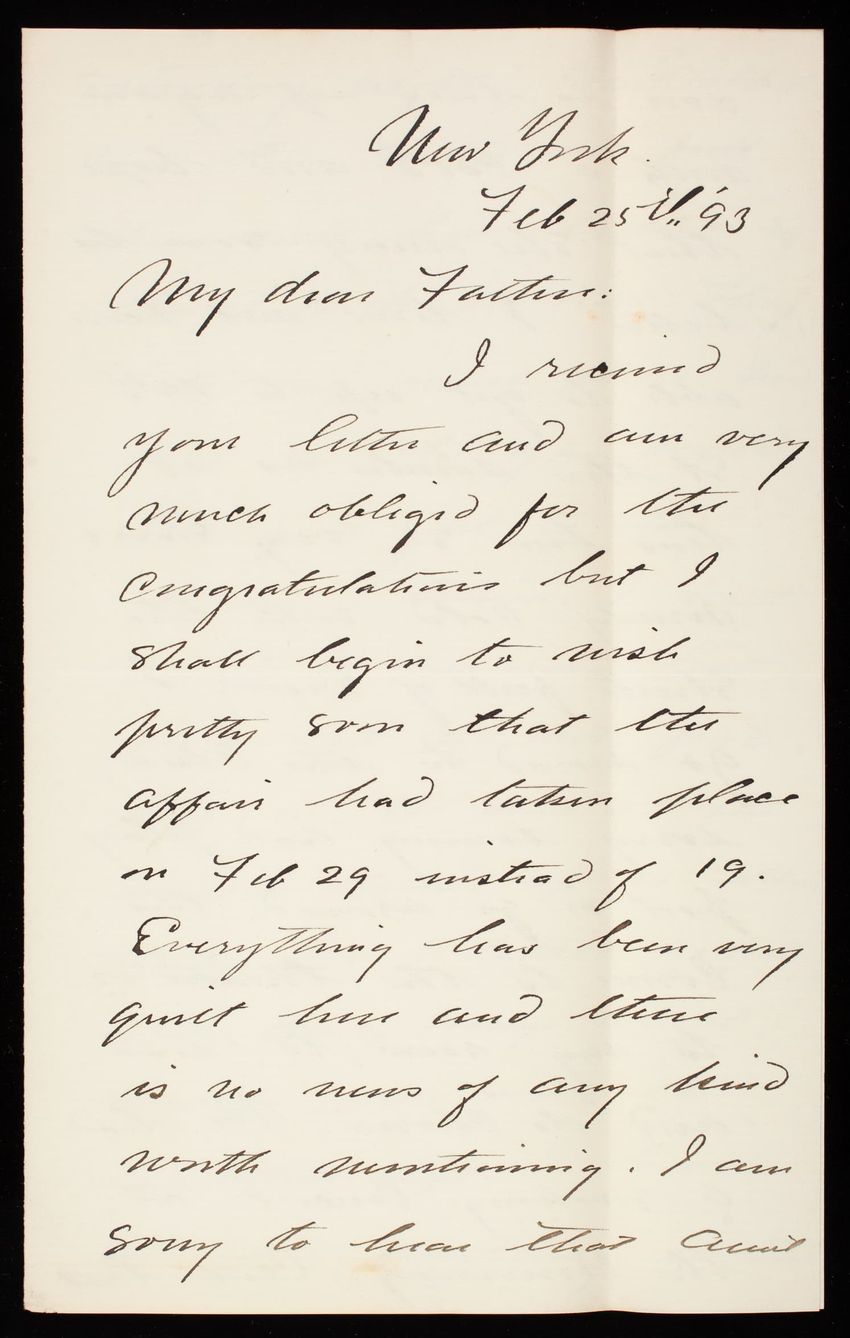 New York.
Feb 25th '93
My dear Father:
I received
your letter and am very
much obliged for the
congratulations but I
shall begin to wish
pretty soon that the
affair had taken place
on Feb 29 instead of 19.
Everything has been very
quiet here and there
is no news of any kind
worth mentioning. I am
sorry to hear that Aunt